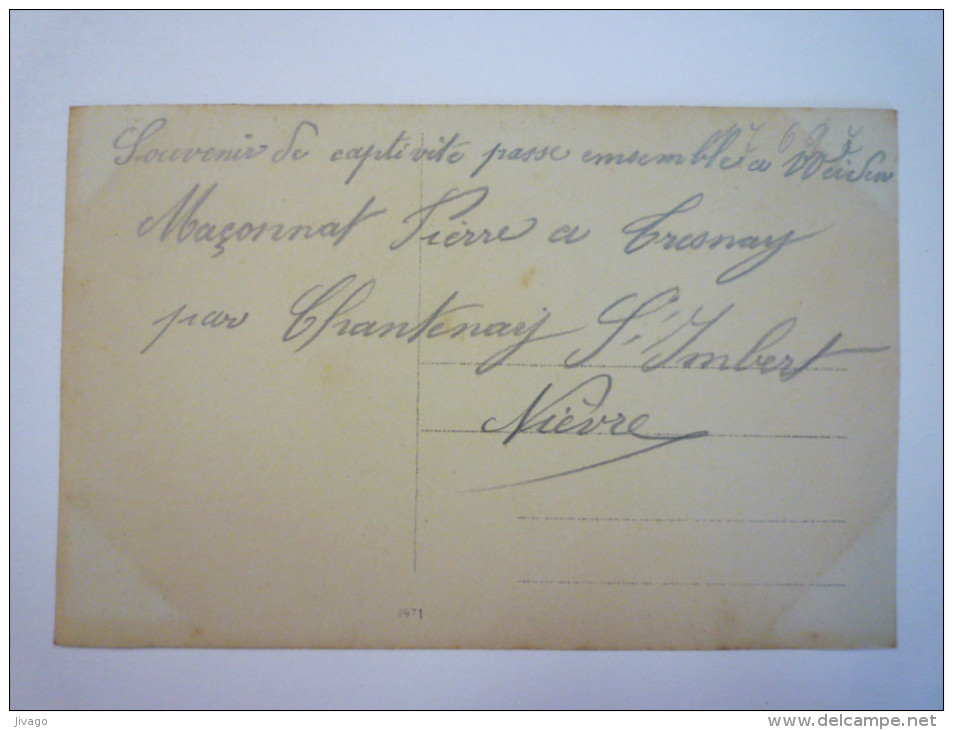 Souvenir de captivite passe ensemble a Weiden
Maçonnat Pierre a Tresnay
par Chantenay St Imbert
Nièvre
Jivago
www.delcampe.net